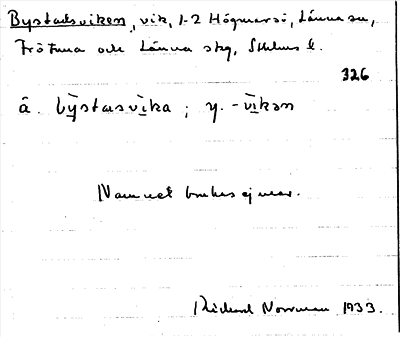 Bystadsviken, vik, 1-2 Högmarsö, Länna sn,
Frötuna och Länna skg, Sthlms l.
326
â. by̱stasvi̱ka ; y. -vi̱kən
Namnet brukas ej mer.
Rickard Norrman 1933.